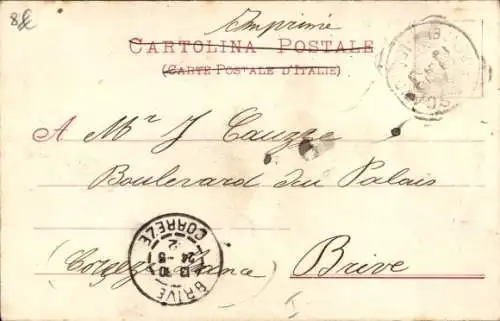 Imprimé
CARTOLINA POSTALE
(CARTE POSTALE D'ITALIE)
A Mr J Cauzge
Boulevard du Palais
Brive
BRIVE
CORREZE